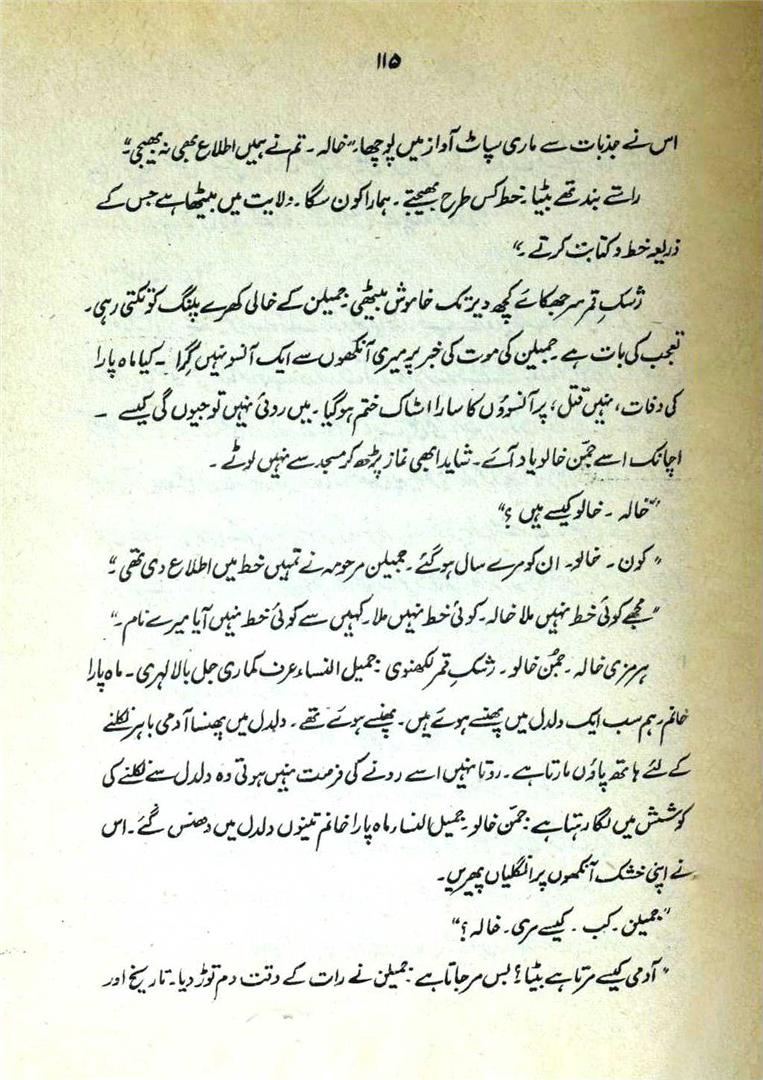 ۱۱۵
اس نے جذبات سے عاری سپاٹ آواز میں پوچھا۔ "خالہ ۔ تم نے ہمیں اطلاع بھی نہ بھیجی۔"
راستے بند تھے بیٹا۔ خط کس طرح بھیجتے ۔ ہمارا کون سگا ۔ ولایت میں بیٹھا ہے جس کے
ذریعہ خط و کتابت کرتے ۔"
رشکِ قمر سر جھکائے کچھ دیر تک خاموش بیٹھی جمیلن کے خالی کھرے پلنگ کو تکتی رہی۔
تعجب کی بات ہے ۔ جمیلن کی موت کی خبر پر میری آنکھوں سے ایک آنسو نہیں گِرا ۔ کیا ماہ پارا
کی وفات، نہیں قتل، پر آنسوؤں کا سارا اسٹاک ختم ہو گیا ۔ میں روئی نہیں تو جیوں گی کیسے ۔
اچانک اسے جمّن خالو یاد آئے ۔ شاید ابھی نماز پڑھ کر مسجد سے نہیں لوٹے ۔
"خالہ ۔ خالو کیسے ہیں ؟"
"کون ۔ خالو۔ ان کو مرے سال ہو گئے ۔ جمیلن مرحومہ نے تمہیں خط میں اطلاع دی تھی ۔"
"مجھے کوئی خط نہیں ملا خالہ ۔ کوئی خط نہیں ملا۔ کہیں سے کوئی خط نہیں آیا میرے نام ۔"
ہرمزی خالہ ۔ جمّن خالو ۔ رشکِ قمر لکھنوی ۔ جمیل النساء عرف کماری جل بالا لہری ۔ ماہ پارا
خانم ۔ ہم سب ایک دلدل میں پھنسے ہوئے ہیں ۔ پھنسے ہوئے تھے ۔ دلدل میں پھنسا آدمی باہر نکلنے
کے لئے ہاتھ پاؤں مارتا ہے ۔ روتا نہیں اسے رونے کی فرصت نہیں ہوتی وہ دلدل سے نکلنے کی
کوشش میں لگا رہتا ہے ۔ جمّن خالو ۔ جمیل النسا۔ ماہ پارا خانم تینوں دلدل میں دھنس گئے ۔ اس
نے اپنی خشک آنکھوں پر انگلیاں پھیریں۔
"جمیلن ۔ کب ۔ کیسے مری ۔ خالہ ؟"
"آدمی کیسے مرتا ہے بیٹا؟ بس مر جاتا ہے ۔ جمیلن نے رات کے وقت دم توڑ دیا ۔ تاریخ اور